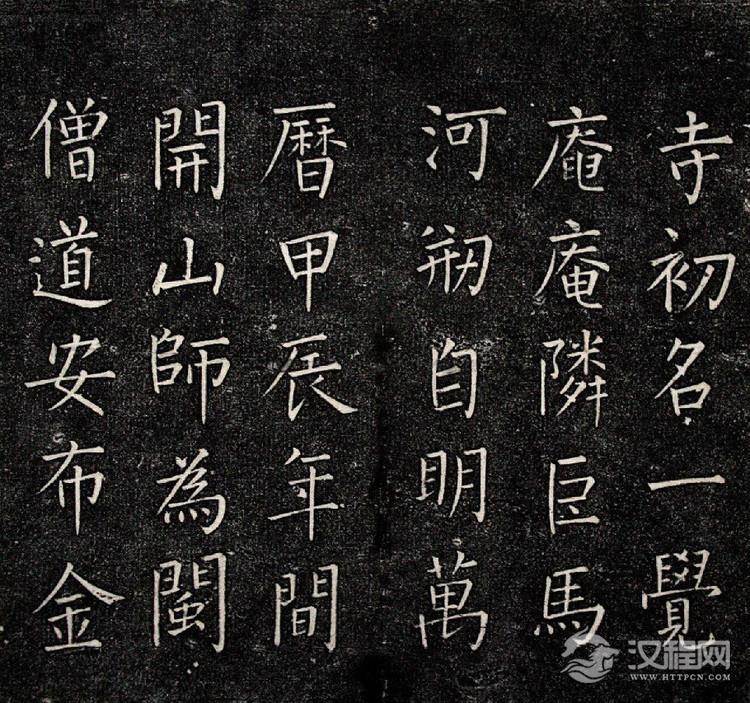 寺初名一覺
庵庵隣臣馬
河刱自明萬
曆甲辰年間
開山師為閩
僧道安布金
汉程网
WWW.HTTPCN.COM